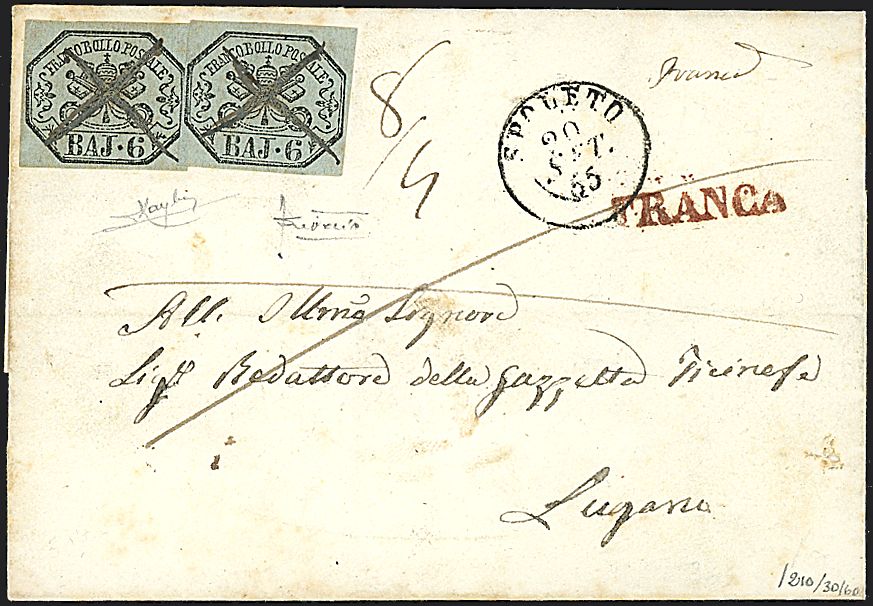 FRANCO BOLLO POSTALE
BAJ·6
FRANCO BOLLO POSTALE
BAJ·6
8/4
Franca
SPOLETO
20
SET.
65
FRANCA
All. Illmo Signore
Sigr Redattore della Gazzetta Ticinese
Lugano
/210/30/60